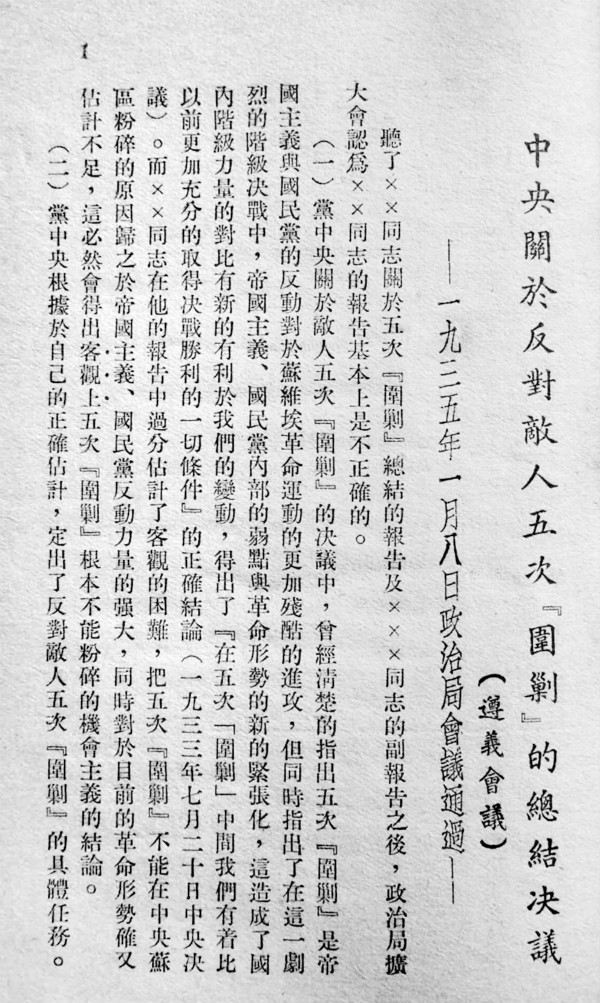 中央關於反對敵人五次『圍剿』的總結決議
(遵義會議)
——一九三五年一月八日政治局會議通過——
聽了××同志關於五次『圍剿』總結的報告及×××同志的副報告之後，政治局擴
大會認爲××同志的報告基本上是不正確的。
(一)黨中央關於敵人五次『圍剿』的決議中，曾經清楚的指出五次『圍剿』是帝
國主義與國民黨的反動對於蘇維埃革命運動的更加殘酷的進攻，但同時指出了在這一劇
烈的階級決戰中，帝國主義、國民黨內部的弱點與革命形勢的新的緊張化，這造成了國
內階級力量的對比有新的有利於我們的變動，得出了『在五次「圍剿」中間我們有着比
以前更加充分的取得決戰勝利的一切條件』的正確結論(一九三三年七月二十日中央決
議)。而××同志在他的報告中過分估計了客觀的困難，把五次『圍剿』不能在中央蘇
區粉碎的原因歸之於帝國主義、國民黨反動力量的强大，同時對於目前的革命形勢確又
估計不足，這必然會得出客觀上五次『圍剿』根本不能粉碎的機會主義的結論。
(二)黨中央根據於自己的正確估計，定出了反對敵人五次『圍剿』的具體任務。
1